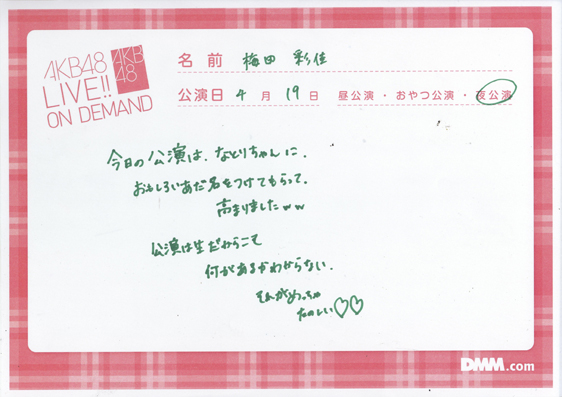 AKB48
LIVE!!
ON DEMAND
AKB
48
名前 梅田 彩佳
公演日 4 月 19 日 昼公演・おやつ公演・夜公演
今日の公演は、なとりちゃんに、
おもしろいあだ名をつけてもらって、
高まりましたww
公演は生だからこそ
何があるかわからない。
それがめっちゃ
たのしい♡♡
DMM.com